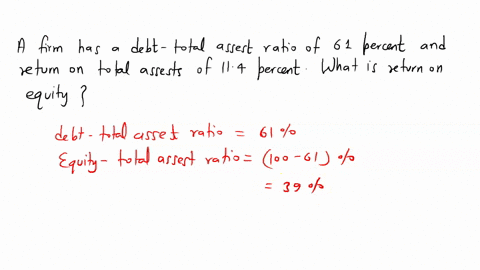 A firm has a debt-total assest ratio of 61 percent and
return on total assests of 11.4 percent. What is return on
equity ?
debt-total asset ratio = 61 %
Equity- total assest ratio = (100-61) %
= 39 %